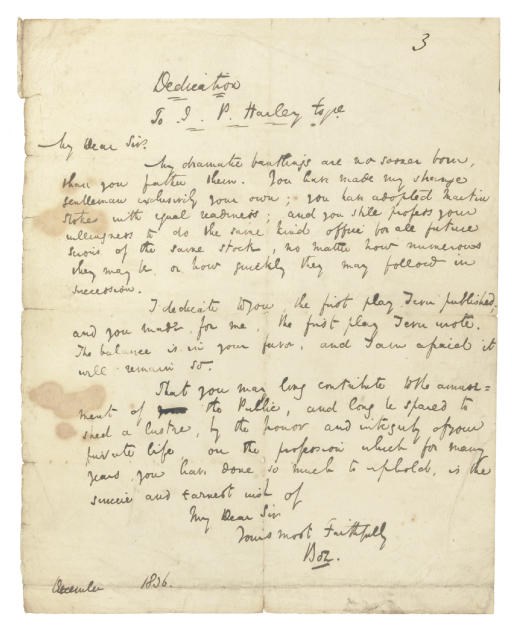 3
Dedication
To J. P. Harley Esqre
My Dear Sir.
My dramatic bantlings are no sooner born,
than you father them. You have made my strange
Gentleman exclusively your own; you have adopted Martin
Stokes with equal readiness; and you still profess your
willingness to do the same kind office for all future
scions of the same stock, no matter how numerous
they may be or how quickly they may follow in
succession.
I dedicate to you the first play I ever published,
and you made for me, the first play I ever wrote.
The balance is in your favor, and I am afraid it
will remain so.
That you may long contribute to the amuse=
ment of the Public, and long be spared to
shed a lustre, by the honor and integrity of your
private life on the profession which for many
years you have done so much to uphold, is the
sincere and earnest wish of
My Dear Sir
Yours most Faithfully
Boz.
December 1836.